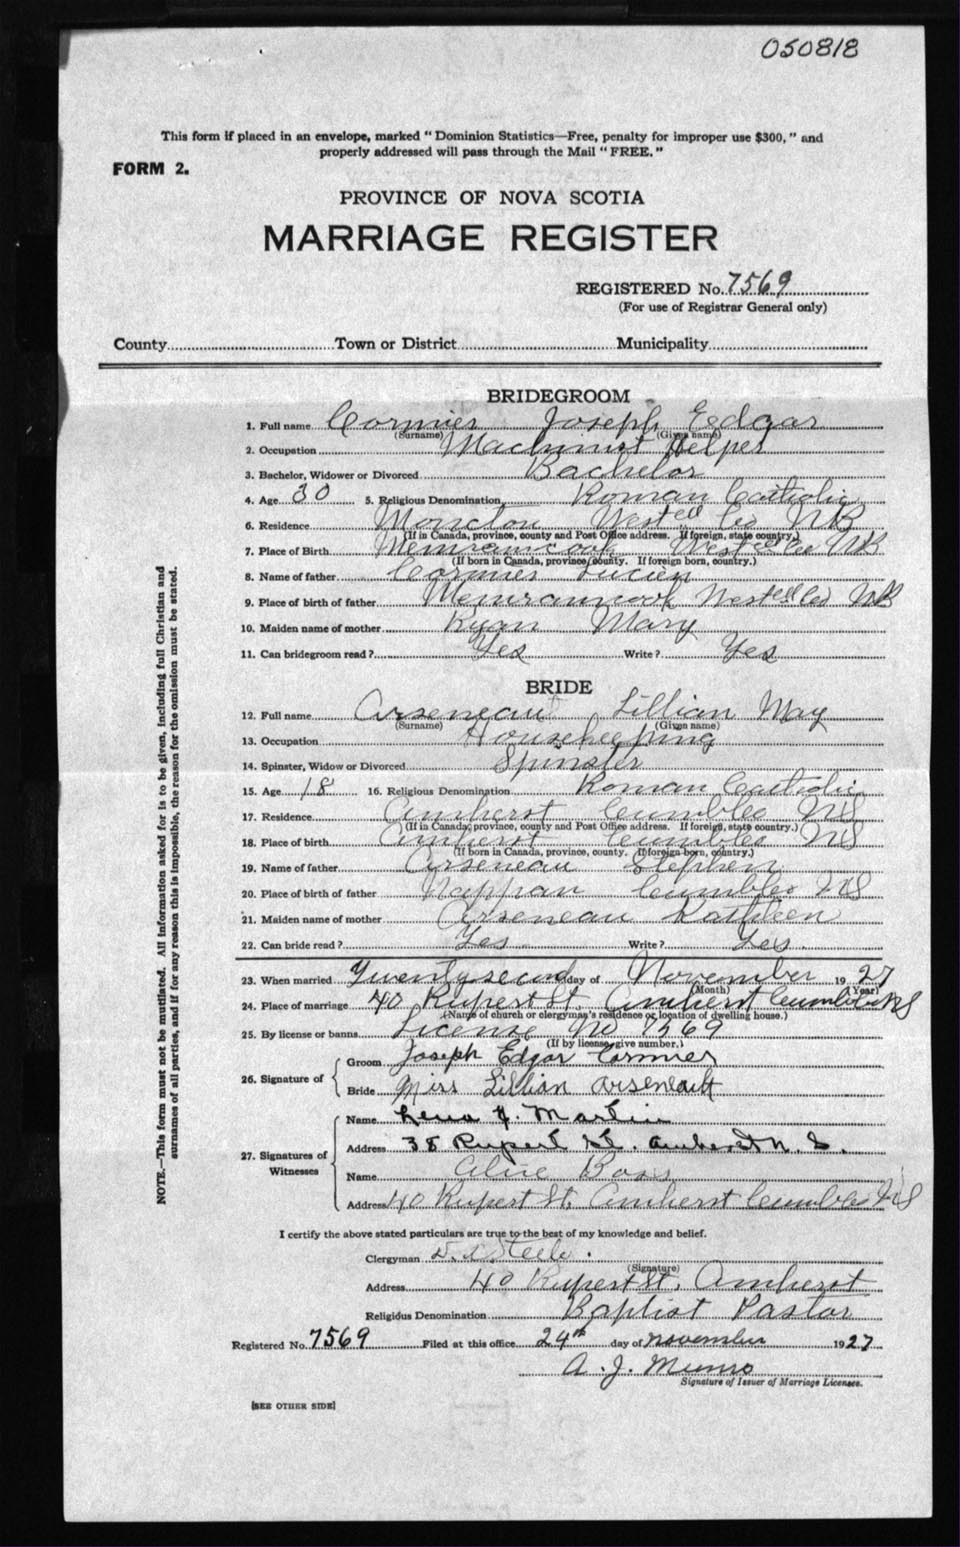 050818
This form if placed in an envelope, marked "Dominion Statistics—Free, penalty for improper use $300," and
properly addressed will pass through the Mail "FREE."
FORM 2.
PROVINCE OF NOVA SCOTIA
MARRIAGE REGISTER
REGISTERED No. 7569
(For use of Registrar General only)
County Town or District Municipality
BRIDEGROOM
1. Full name Cormier Joseph Eedgar
(Surname) (Given name)
2. Occupation Machinist Helper
3. Bachelor, Widower or Divorced Bachelor
4. Age 30 5. Religious Denomination Roman Catholic
6. Residence Moncton West Co NB
(If in Canada, province, county and Post Office address. If foreign, state country.)
7. Place of Birth Memramcook West Co NB
(If born in Canada, province, county. If foreign born, country.)
8. Name of father Cormier Lucien
9. Place of birth of father Memramcook West Co NB
10. Maiden name of mother Ryan Mary
11. Can bridegroom read? Yes Write? Yes
BRIDE
12. Full name Arseneau Lillian May
(Surname) (Given name)
13. Occupation Housekeeping
14. Spinster, Widow or Divorced Spinster
15. Age 18 16. Religious Denomination Roman Catholic
17. Residence Amherst Cumb Co NS
(If in Canada, province, county and Post Office address. If foreign, state country.)
18. Place of birth Amherst Cumb Co NS
(If born in Canada, province, county. If foreign born, country.)
19. Name of father Arseneau Stephen
20. Place of birth of father Nappan Cumb Co NS
21. Maiden name of mother Arseneau Kathleen
22. Can bride read? Yes Write? Yes
23. When married Twenty second day of November 1927
(Month) (Year)
24. Place of marriage 40 Rupert St. Amherst Cumb Co NS
(Name of church or clergyman's residence or location of dwelling house.)
25. By license or banns License No 7569
(If by license, give number.)
26. Signature of
Groom Joseph Edgar Cormier
Bride Miss Lillian Arseneault
27. Signatures of Witnesses
Name Lena J. Martin
Address 38 Rupert St. Amherst N. S.
Name Alice Boss
Address 40 Rupert St, Amherst Cumb Co NS
I certify the above stated particulars are true to the best of my knowledge and belief.
Clergyman Steele.
(Signature)
Address 40 Rupert St. Amherst
Religious Denomination Baptist Pastor
Registered No. 7569 Filed at this office 24th day of November 1927
A. J. Munro
Signature of Issuer of Marriage Licenses.
(SEE OTHER SIDE)
NOTE.—This form must not be mutilated. All information asked for is to be given, including full Christian and
surnames of all parties, and if for any reason this is impossible, the reason for the omission must be stated.